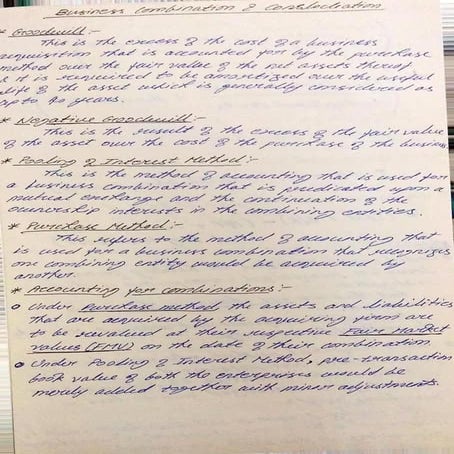 Business Combination & Consolidation
* Goodwill:-
This is the excess of the cost of a business
acquisition that is accounted for by the purchase
method over the fair value of the net assets thereof
& it is required to be amortized over the useful
life of the asset which is generally considered as
upto 40 years.
* Negative Goodwill:-
This is the result of the excess of the fair value
of the asset over the cost of the purchase of the business
* Pooling of Interest Method:-
This is the method of accounting that is used for
a business combination that is predicated upon a
mutual exchange and the continuation of the
ownership interests in the combining entities.
* Purchase Method:-
This refers to the method of accounting that
is used for a business combination that recognizes
one combining entity would be acquired by
another.
* Accounting for combinations:-
o Under Purchase method the assets and liabilities
that are acquired by the acquiring firm are
to be revalued at their respective Fair Market
Values (FMV) on the date of their combination.
o Under Pooling of Interest Method, pre-transaction
book value of both the enterprises would be
merely added together with minor adjustments.